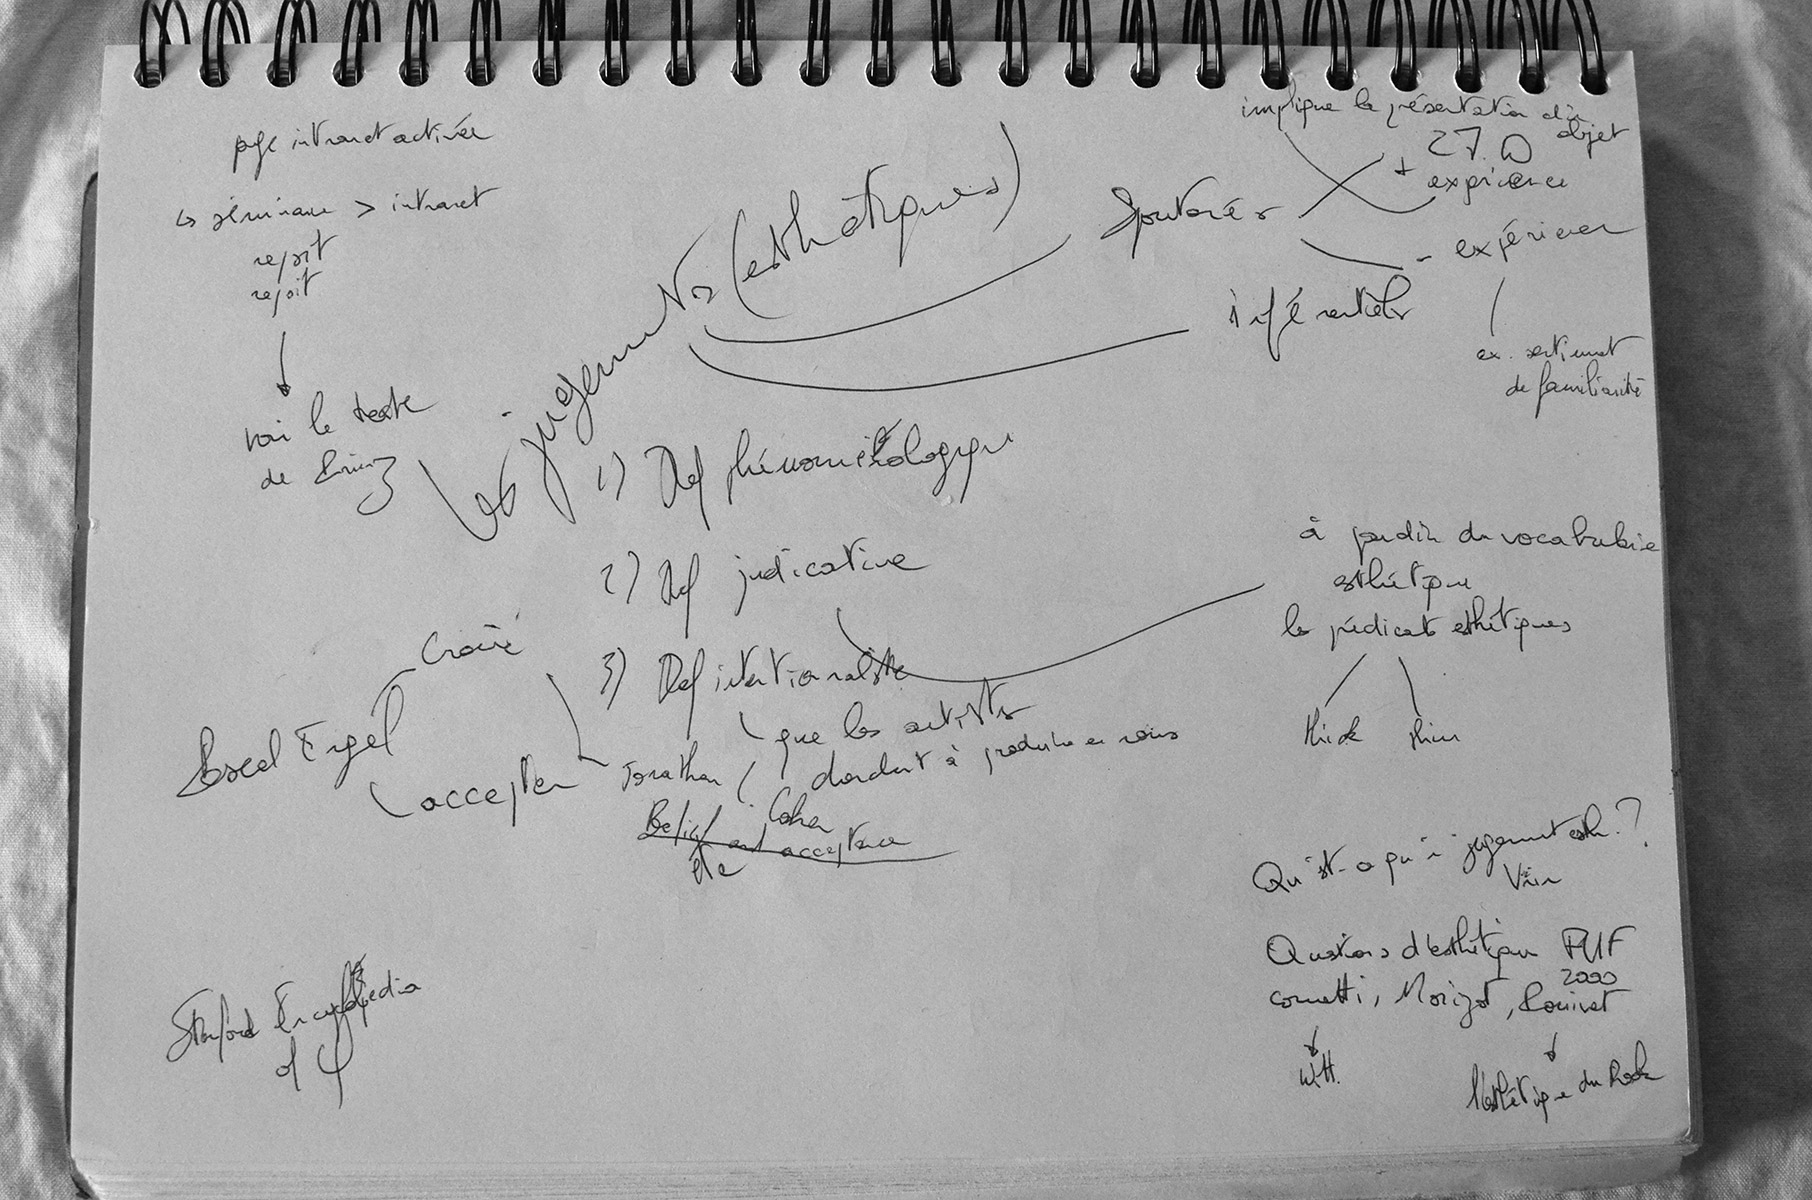 page intranet activée
↳ séminaire > intranet
report
report
voir le texte
de
Les jugements (esthétiques)
spontanés
inférentiels
implique la présentation d'un
objet
27.
+ expérience
- expérience
ex. sentiment
de familiarité
1) Def phénoménologique
2) Def judicative
3) Def intentionnaliste
que les artistes
cherchent à produire en nous
à partir du vocabulaire
esthétique
les prédicats esthétiques
thick thin
Pascal Engel
Croire
accepter
Jonathan
Cohen
Belief and acceptance
Qu'est-ce qu'1 jugement esth.?
Vrin
Questions d'esthétique PUF
2000
Cometti, Morizot, Pouivet
Witt.
l'esthétique du Rock
Stanford Encyclopedia
of φ